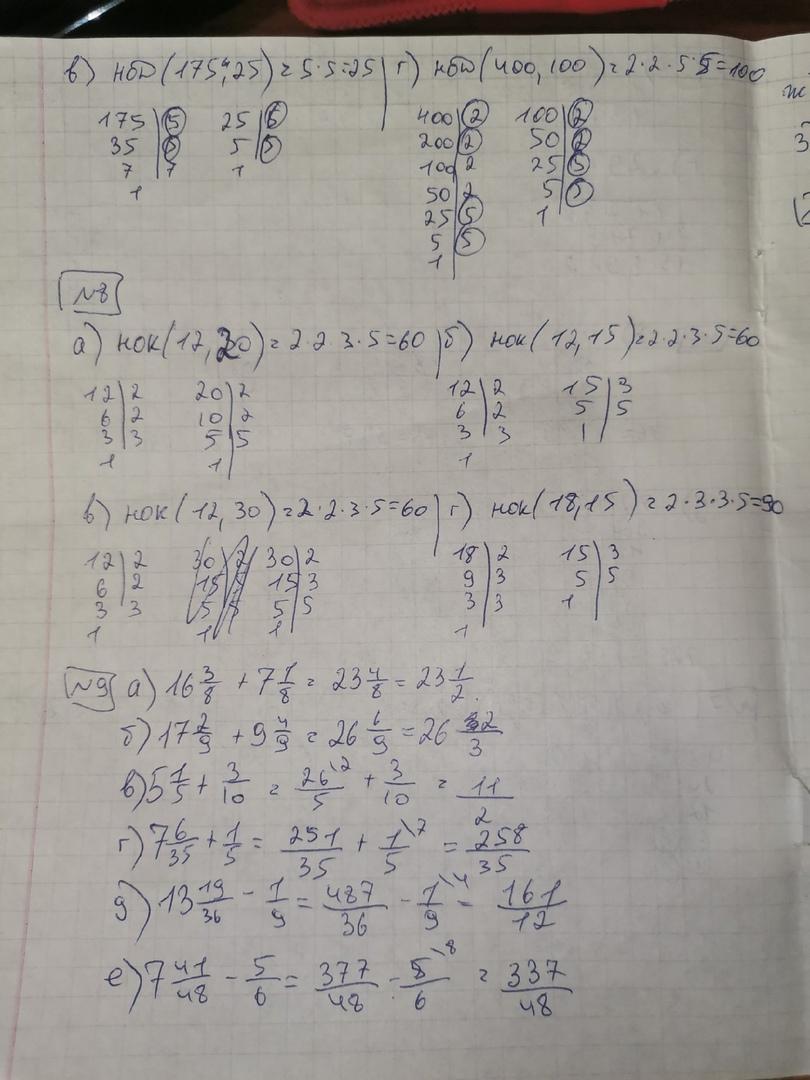 в) НОД(175,25)=5·5=25 г) НОД(400,100)=2·2·5·5=100
175|5 25|5 400|2 100|2
35|5 5|5 200|2 50|2
7|7 1 100|2 25|5
1 50|2 5|5
25|5 1
5|5
1
№8
а) НОК(12,20)=2·2·3·5=60 б) НОК(12,15)=2·2·3·5=60
12|2 20|2 12|2 15|3
6|2 10|2 6|2 5|5
3|3 5|5 3|3 1
1 1 1
в) НОК(12,30)=2·2·3·5=60 г) НОК(18,15)=2·3·3·5=90
12|2 30|2 18|2 15|3
6|2 15|3 9|3 5|5
3|3 5|5 3|3 1
1 1 1
№9 а) 16 3/8 + 7 1/8 = 23 4/8 = 23 1/2
б) 17 2/9 + 9 4/9 = 26 6/9 = 26 2/3
в) 5 1/5 + 3/10 = 26\2/5 + 3/10 = 11/2
г) 7 6/35 + 1/5 = 251/35 + 1\7/5 = 258/35
д) 13 19/36 - 1/9 = 487/36 - 1\4/9 = 161/12
е) 7 41/48 - 5/6 = 377/48 - 5\8/6 = 337/48